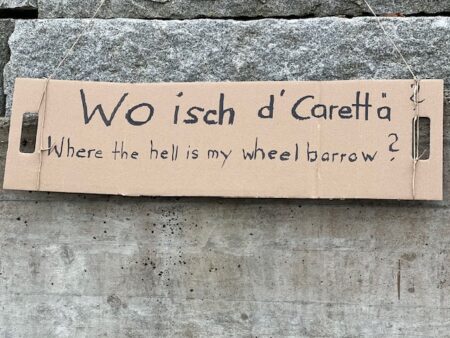 Wo isch d'Carettä ?
Where the hell is my wheelbarrow ?